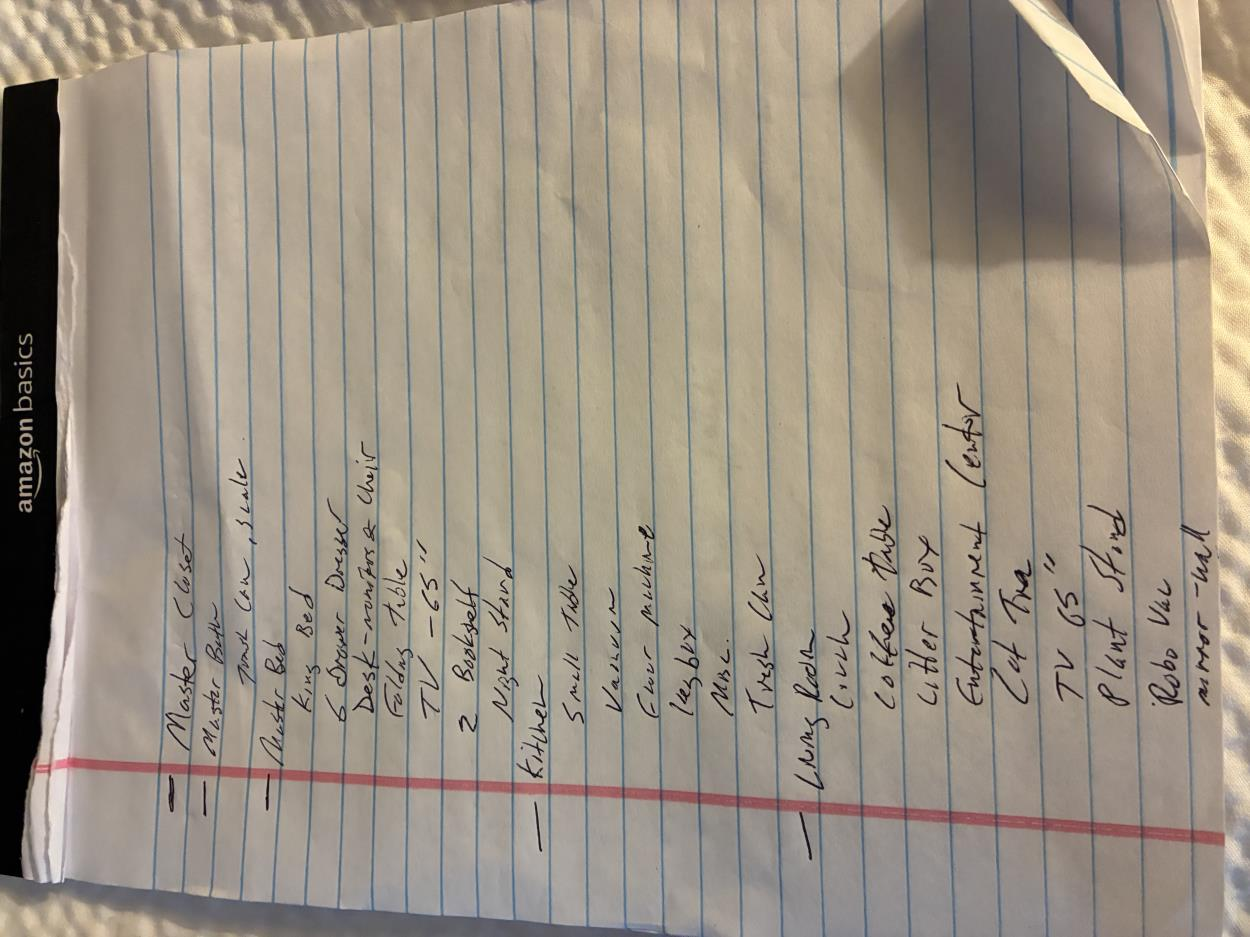 amazon basics
- Master Closet
- Master Bath
Trash Can, scale
- Master Bed
King Bed
6 Drawer Dresser
Desk-monitors & Chair
Folding Table
TV - 65"
2 Bookshelf
Night Stand
- Kitchen
Small Table
Vacuum
machine
Misc.
Trash Can
- Living Room
Couch
Coffee Table
Litter Box
Entertainment Center
Cat Tree
TV 65"
Plant Stand
Robo Vac
mirror-wall